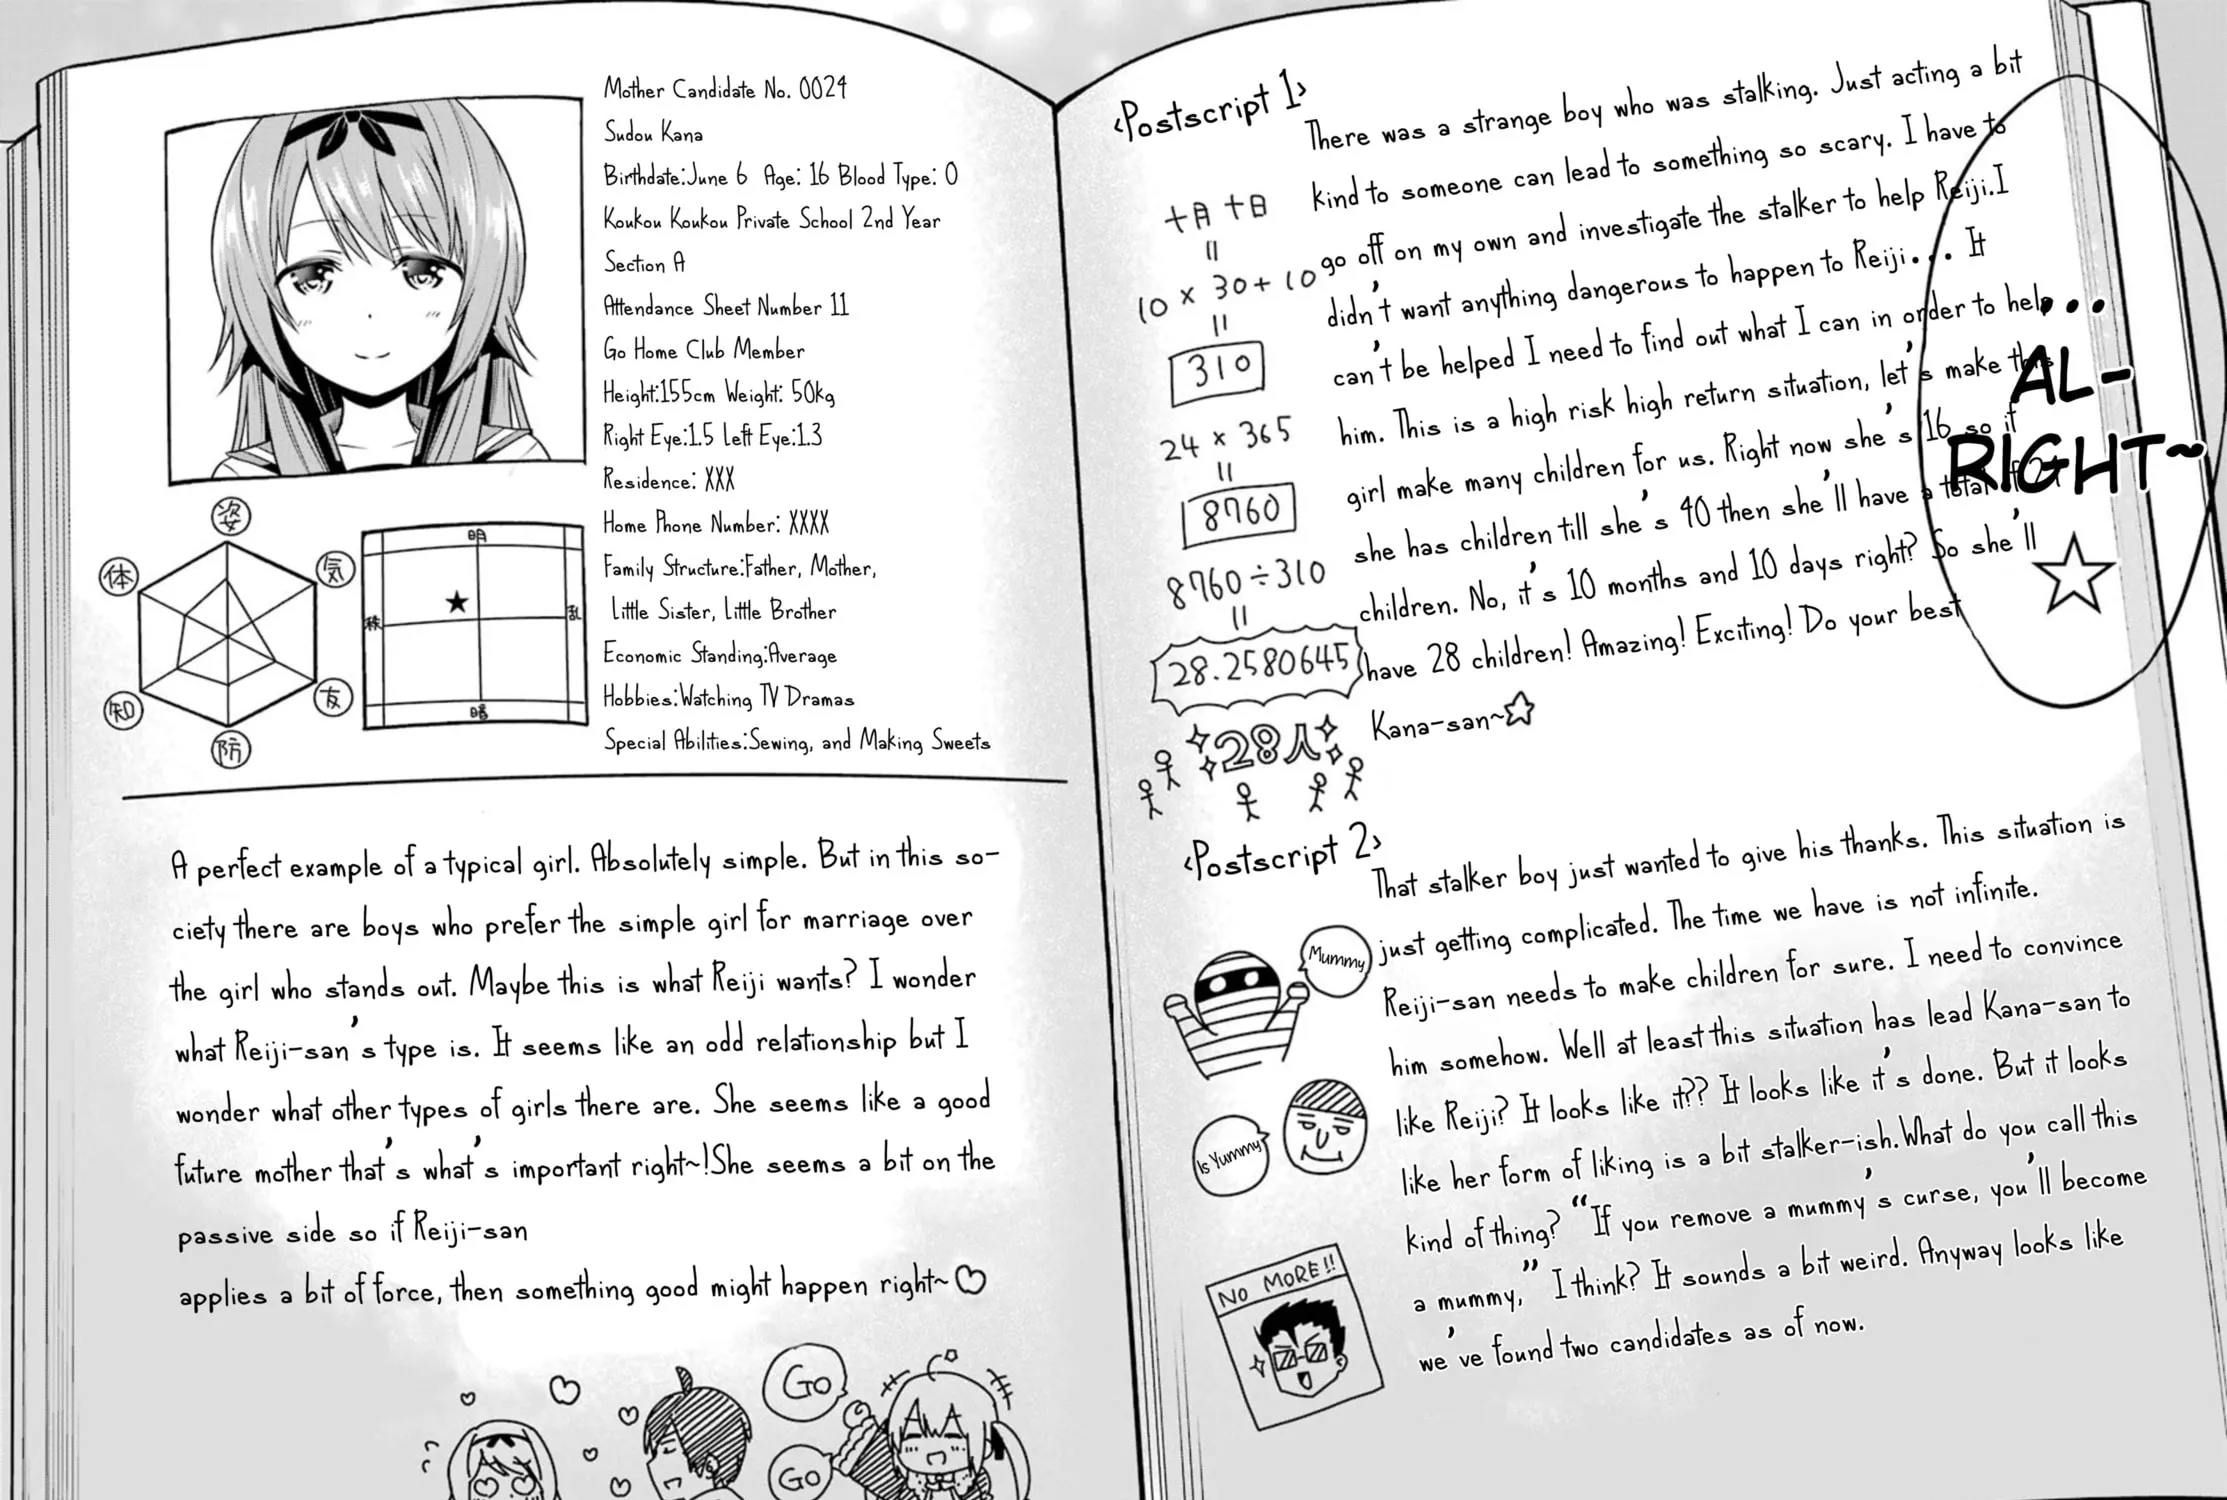 Mother Candidate No. 0024
Sudou Kana
Birthdate:June 6 Age: 16 Blood Type: O
Koukou Koukou Private School 2nd Year
Section A
Attendance Sheet Number 11
Go Home Club Member
Height:155cm Weight: 50kg
Right Eye:1.5 Left Eye:1.3
Residence: XXX
Home Phone Number: XXXX
Family Structure:Father, Mother,
Little Sister, Little Brother
Economic Standing:Average
Hobbies:Watching TV Dramas
Special Abilities:Sewing, and Making Sweets
姿
気
友
防
知
体
明
乱
暗
秩
A perfect example of a typical girl. Absolutely simple. But in this so-
ciety there are boys who prefer the simple girl for marriage over
the girl who stands out. Maybe this is what Reiji wants? I wonder
what Reiji-san's type is. It seems like an odd relationship but I
wonder what other types of girls there are. She seems like a good
future mother that's what's important right~!She seems a bit on the
passive side so if Reiji-san
applies a bit of force, then something good might happen right~♡
Go
Go
<Postscript 1>
There was a strange boy who was stalking. Just acting a bit
kind to someone can lead to something so scary. I have to
go off on my own and investigate the stalker to help Reiji.I
didn't want anything dangerous to happen to Reiji... It
can't be helped I need to find out what I can in order to help
him. This is a high risk high return situation, let's make this
girl make many children for us. Right now she's 16 so if
she has children till she's 40 then she'll have a total
children. No, it's 10 months and 10 days right? So she'll
have 28 children! Amazing! Exciting! Do your best
Kana-san~☆
十月十日
=
10 × 30+ 10
=
310
24 × 365
=
8760
8760÷310
=
28.2580645
28人
...
AL-
RIGHT~
☆
<Postscript 2>
That stalker boy just wanted to give his thanks. This situation is
just getting complicated. The time we have is not infinite.
Reiji-san needs to make children for sure. I need to convince
him somehow. Well at least this situation has lead Kana-san to
like Reiji? It looks like it?? It looks like it's done. But it looks
like her form of liking is a bit stalker-ish.What do you call this
kind of thing? "If you remove a mummy's curse, you'll become
a mummy," I think? It sounds a bit weird. Anyway looks like
we've found two candidates as of now.
Mummy
Is Yummy
NO MORE!!